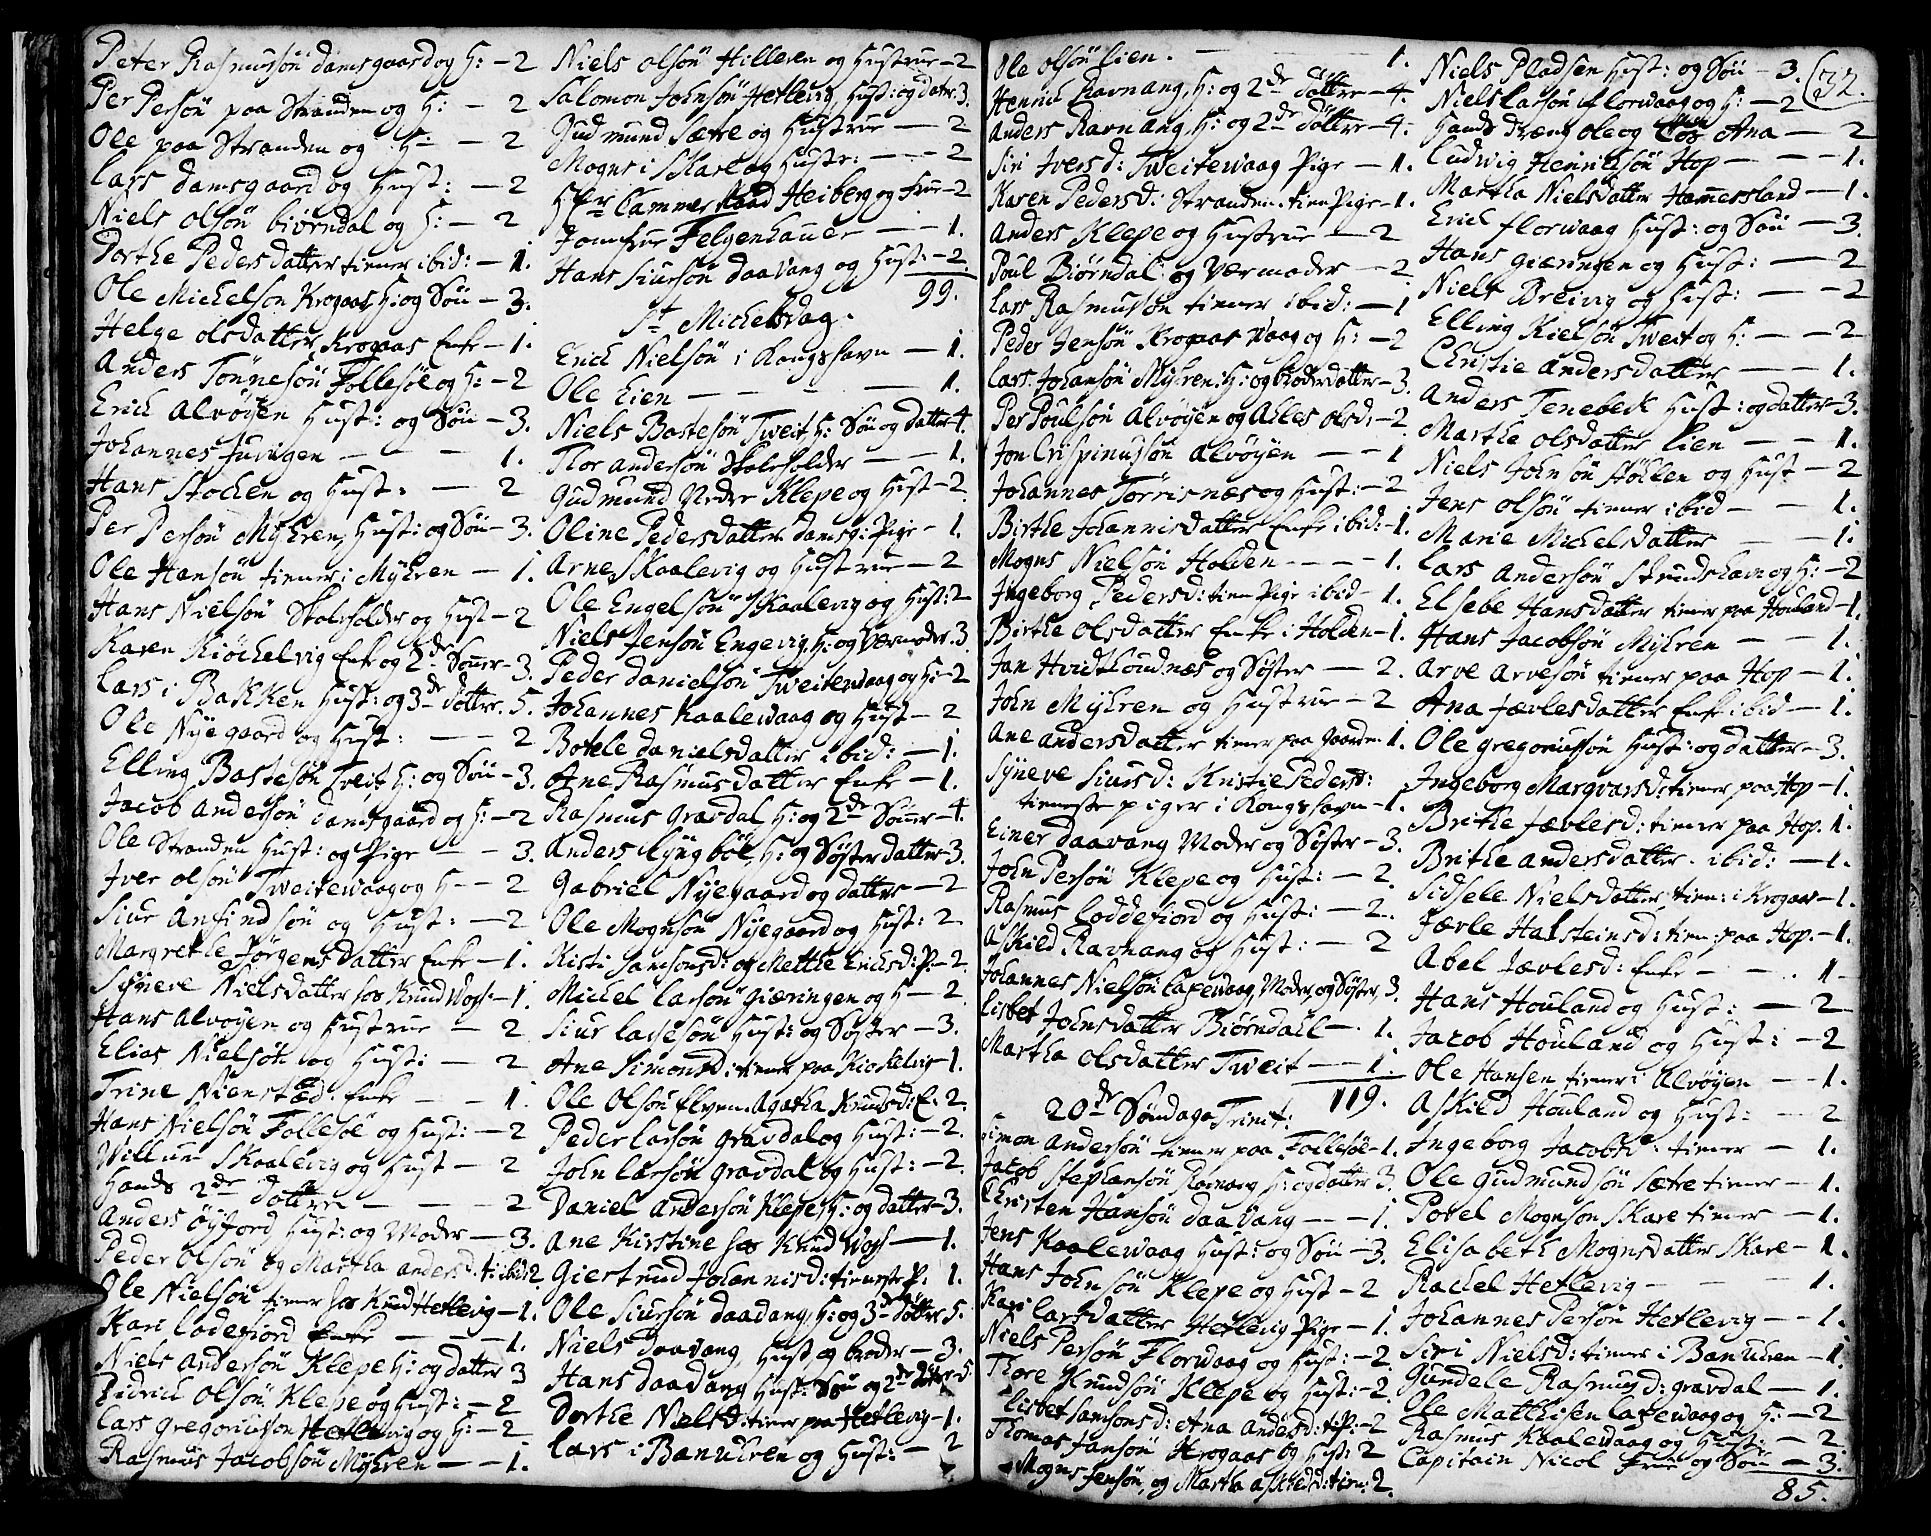 Peter Rasmusøn damsgaard og H: — 2
Per Persøn paa Stranden og H: — 2
Ole paa Stranden og H: — 2
Lars damsgaard og Hust: — 2
Niels olsøn biørndal og H: — 2
Dorthe Pedersdatter tiener ibid: — 1.
Ole Michelsøn Krogaas H: og Søn — 3.
Helge olsdatter Krogaas Enke — 1.
Anders Tønnesøn Follesøe og H: — 2
Erich Alvøyen Hust: og Søn — 3.
Johannes Juvigen — — — 1.
Hans Stochen og Hust: — 2
Per Persøn Myhren, Hust: og Søn — 3.
Ole Hansøn tiener i Myhren — 1.
Hans Nielsøn Skoleholder og Hust — 2
Karen Kiøchelvig Enke og 2de Sønner — 3.
Lars i Bakken Hust: og 3de døttre. 5.
Ole Nyegaard og Hust: — — 2
Elling Bastesøn Tveit H: og Søn — 3.
Jacob Andersøn damsgaard og H: — 2
Ole Stranden Hust: og Pige — — 3.
Iver olsøn Tweitewaag og H — 2
Siur Anfindsøn og Hust: — 2
Margrethe Jørgensdatter Enke — 1.
Synneve Nielsdatter hos Knud Wogs — 1.
Hans Alvøyen og Hustrue — 2
Elias Nielsøn og Hust: — 2
Trine Nienstæd: Enke — — 1.
Hans Nielsøn Follesøe og Hust: — 2
Willum Skaalevig og Hust — 2
Hands 2de døttre — — — 2
Anders øyford Hust: og Moder — 3.
Peder Olsøn og Martha andersd. t: ibid 2
Ole Nielsøn tiener hos Knud Hetlevig — 1.
Kari Lodefiord Enke — — — 1.
Niels Andersøn Klepe H: og datter 3
Didrich Olsøn Klepe og Hust: — 2
Lars Gregoriusøn Hetlevig og H: — 2
Rasmus Jacobsøn Myhren — — 1.
Niels olsøn Hilleren og Hustrue — 2
Salomon Johnsøn Hetlevig, Hust: og datr: 3.
Gudmund Sætre og Hustrue — 2
Mogns i Skare og Hustr: — — 2
Hr Cammerraad Heiberg og Frue — 2
Jomfrue Felgenhauer — — 1.
Hans Siursøn daavang og Hust: — 2
99.
St Michelsdag.
Erich Nielsøn i Kongshavn — 1.
Ole Lien — — — — 1.
Niels Bastesøn Tweit H: Søn og datter 4.
Thor Andersøn Skoleholder — — 1.
Gudmund Nedre Klepe og Hust — 2
Oline Pedersdatter damsg: Pige — 1.
Arne Skaalevig og Hustrue — 2
Ole Engelsøn Skaalevig og Hust: 2
Niels Jensøn Engevig, H: og Værmoder. 3
Peder Danielsøn Tweitewaag og H: — 2
Johannes Kaalewaag og Hust — 2
Botele danielsdatter ibid: — 1.
Ane Rasmusdatter Enke — 1.
Rasmus Gravdal H: og 2de Sønner — 4.
Anders Lyngbøe, H: og Søsterdatter 3.
Gabriel Nyegaard og datter — 2
Ole Mognsøn Nyegaard og Hust: 2
Kisti Samsonsd: og Mettle Erichsd: P. — 2.
Michel Larsøn Giæringen og H — 2.
Siur Lassesøn Hust: og Søster — 3.
Ane Simonsd: tiener paa Kiøkelvig — 1.
Ole Olsøn Elven. Agatha Knudsd: E. 2.
Peder Larsøn Gravdal og Hust: — 2.
John Larsøn Gravdal og Hust: — 2.
Daniel Andersøn Klepe H: og datter — 3.
Ane Kirstine hos Knud Wogs — 1.
Giertrud Johannisd: tieneste P. 1.
Ole Siursøn daadang, H: og 3de døttre 5.
Niels Daavang, Hust og broder — 3.
Hans daadang Hust: Søn og 2de døttre — 5
Dorthe Nielsd: tiener paa Hetlevig — 1.
Lars i Banuhren og Hust: — 2
Ole olsøn Lien. — — — 1.
Henrich Ravnang, H: og 2de døttre — 4.
Anders Ravnang, H: og 2de døttre — 4.
Siri Iversd: Tweitewaag Pige — 1.
Karen Pedersd: Stranden. tien Pige — 1.
Anders Klepe og Hustrue — 2
Poul Biørndal: og Værmoder — 2
Lars Rasmusøn tiener ibid: — 1
Peder Jensøn Krogaas Waag og H: — 2
Lars Johansøn Myhren: H: og broderdatter — 3.
Per Poulsøn Alvøyen og Alles olsd: — 2
Jon Crispinusøn Alvøyen — — 1
Johannes Tørrisnæs og Hust: — 2
Birthe Johannisdatter Enke ibid: — 1.
Mogns Nielsøn Holden — — — 1.
Ingeborg Pedersd: tien Pige ibid — 1.
Birthe Olsdatter Enke i Holden — 1.
Jan Hvidtkudnæs og Søster — 2.
John Myhren og Hustrue — 2
Ane Andersdatter tiener paa Gaarden 1.
Syneve Siursd: Kristie Pedersd:
tieneste piger i Kongshavn — 1.
Einer daavang Moder og Søster — 3.
John Persøn Klepe og Hust: — 2.
Rasmus Loddefiord og Hust: — 2.
Askild Ravnang og Hust: — 2
Johannes Nielsøn Casewaag, Moder og Søster, 3.
Lisbet Johnsdatter Biørndall — 1.
Martha olsdatter Tweit — — 1.
119.
20de Søndag Trinit:
Simon Andersøn tiener paa Follesøe — 1.
Jacob Stephansøn Ravnang H: og datter 3.
Christen Hansøn daavang — — 1.
Jens Kaalewaag Hust: og Søn — 3.
Hans Johnsøn Klepe og Hust — 2
Kari Larsdatter Hetlevig Pige — 1.
Niels Persøn Florwaag og Hust: — 2
Thore Knudsøn Klepe og Hust: — 2.
Lisbet Samsonsd: Ana Andersd: t: P: — 2
Thomas Jansøn Krogaas og Hust: 2
Mogns Jensøn, og Martha Askildsd: tien: 2.
Niels Pladsen Hust: og Søn — 3. (32.)
Niels Larsøn Florwaag og H: — 2
Hands dreng Ole og Ana — 2
Ludwig Henrichsøn Hop — — — 1.
Martha Nielsdatter Hammersland — 1.
Erich Florwaag Hust: og Søn — 3.
Hans Giæringen og Hust: — 2
Niels Breivig og Hust: — — 2
Elling Kielsøn Tweit og H: — — 2
Christie Andersdatter — — 1.
Anders Tenebeck Hust: og datter — 3.
Marthe Olsdatter Lien — — 1.
Niels Johnsøn Støhlen og Hust — 2
Jens olsøn tiener ibid — — 1.
Marie Michelsdatter — — 1.
Lars Andersøn Strudshavn og H: — 2
Elsebe Hansdatter tiener paa Houland — 1.
Hans Jacobsøn Myhren — — 1.
Arve Arvesøn tiener paa Hop — 1.
Ana Jævlesdatter Enke ibid — 1.
Ole Gregoriussøn Hust: og datter — 3.
Ingeborg Marqvarsd: tiener paa Hop — 1.
Brithe Jævlesd: tiener paa Hop. 1.
Brithe Andersdatter. ibid: — 1.
Sidsele Nielsdatter: tien: i Krogaas — 1.
Jævle Halsteinsd: tien: paa Hop. — 1.
Abel Jævlesd: Enke — — . 1
Hans Houland og Hust: — 2
Jacob Houland og Hust: — 2
Ole Hansen tiener i Alvøyen — — 1.
Askild Houland og Hust: — 2
Ingeborg Jacobsd: tiener — 1.
Ole Gudmundsøn Sætre tiener — 1.
Povel Mognsøn Skare tiener — 1.
Elisabeth Mognsdatter Skare — 1.
Rachel Hetlevig — — — 1.
Johannes Persøn Hetlevig — — 1.
Siri Nielsd: tiener i Banuhren — 1.
Gundele Rasmusd: gravdal — 1.
Ole Mathisen Casewaag og H: — 2
Rasmus Kaalewaag og Hust: — 2.
Capitain Nicol Frue og Søn — 3.
85.